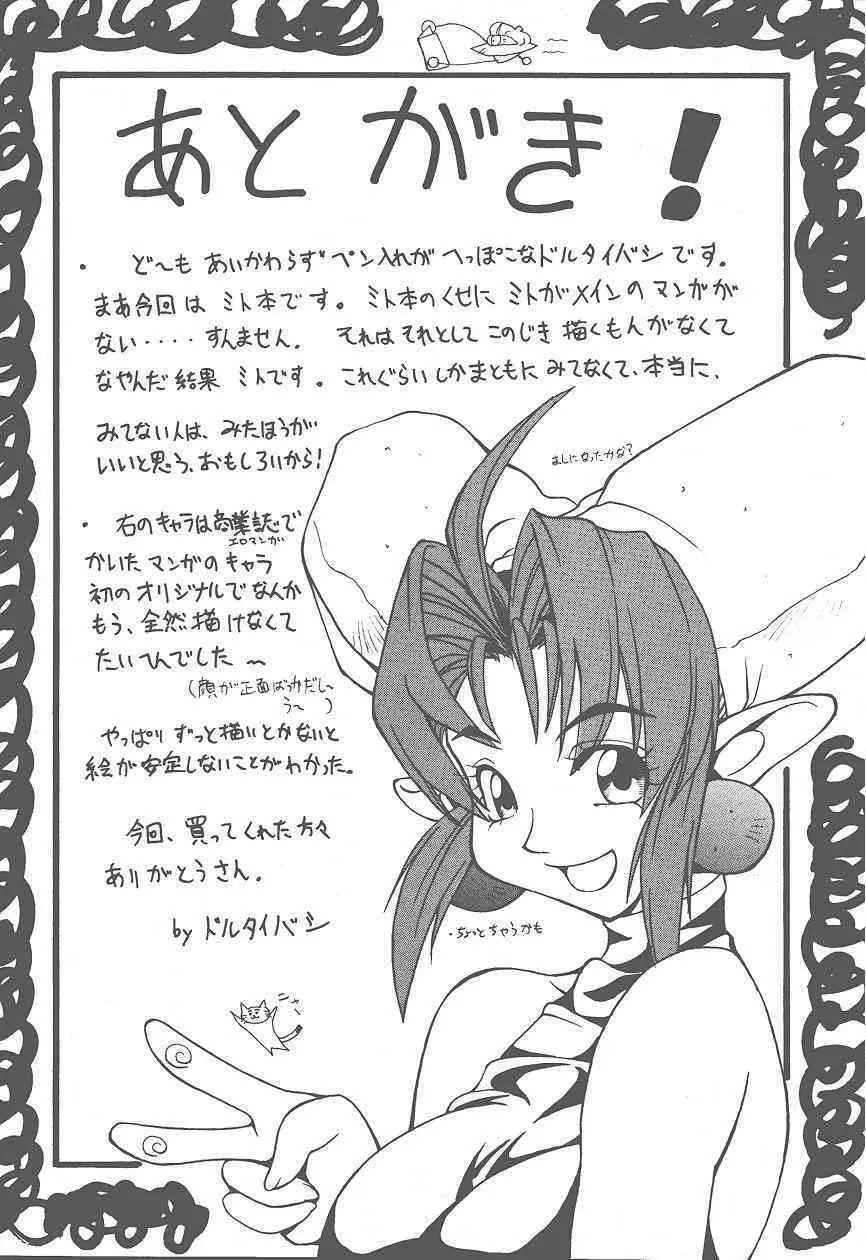 あとがき!
・ ど〜も あいかわらず ペン入れが へっぽこな ドルタイバシ です。
まあ今回は ミト本です。ミト本のくせに ミトがメインの マンガが
ない・・・・すんません。 それはそれとして このじき 描くもんがなくて
なやんだ結果 ミトです。これぐらいしかまともに みてなくて、本当に、
みてない人は、みたほうが
いいと思う、おもしろいから!
ましになったかな?
・ 右のキャラは商業誌で
エロマンガ
かいた マンガのキャラ
初のオリジナルでなんか
もう、全然描けなくて
たいへんでした〜
(顔が正面ばっかだし〜
う〜 )
やっぱり ずっと描いとかないと
絵が安定しないことがわかった。
今回、買ってくれた方々
ありがとうさん。
by ドルタイバシ
・ちょっとちゃうかも
ニャー